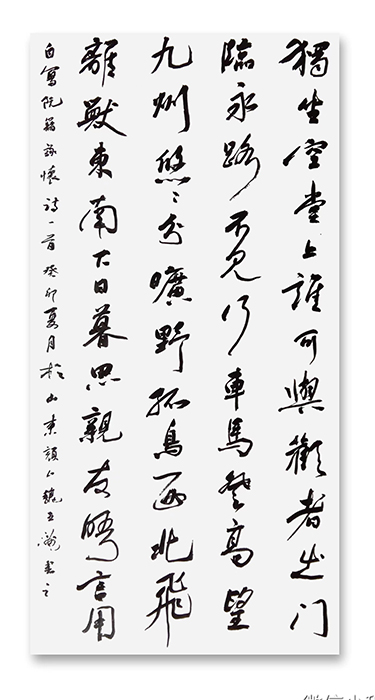 獨坐空堂上誰可與歡者出门
臨永路不見行車馬登高望
九州悠々分曠野孤鳥西北飛
離獸東南下日暮思親友晤言用
自寫阮籍詠懷詩一首癸卯夏月於山東 書之